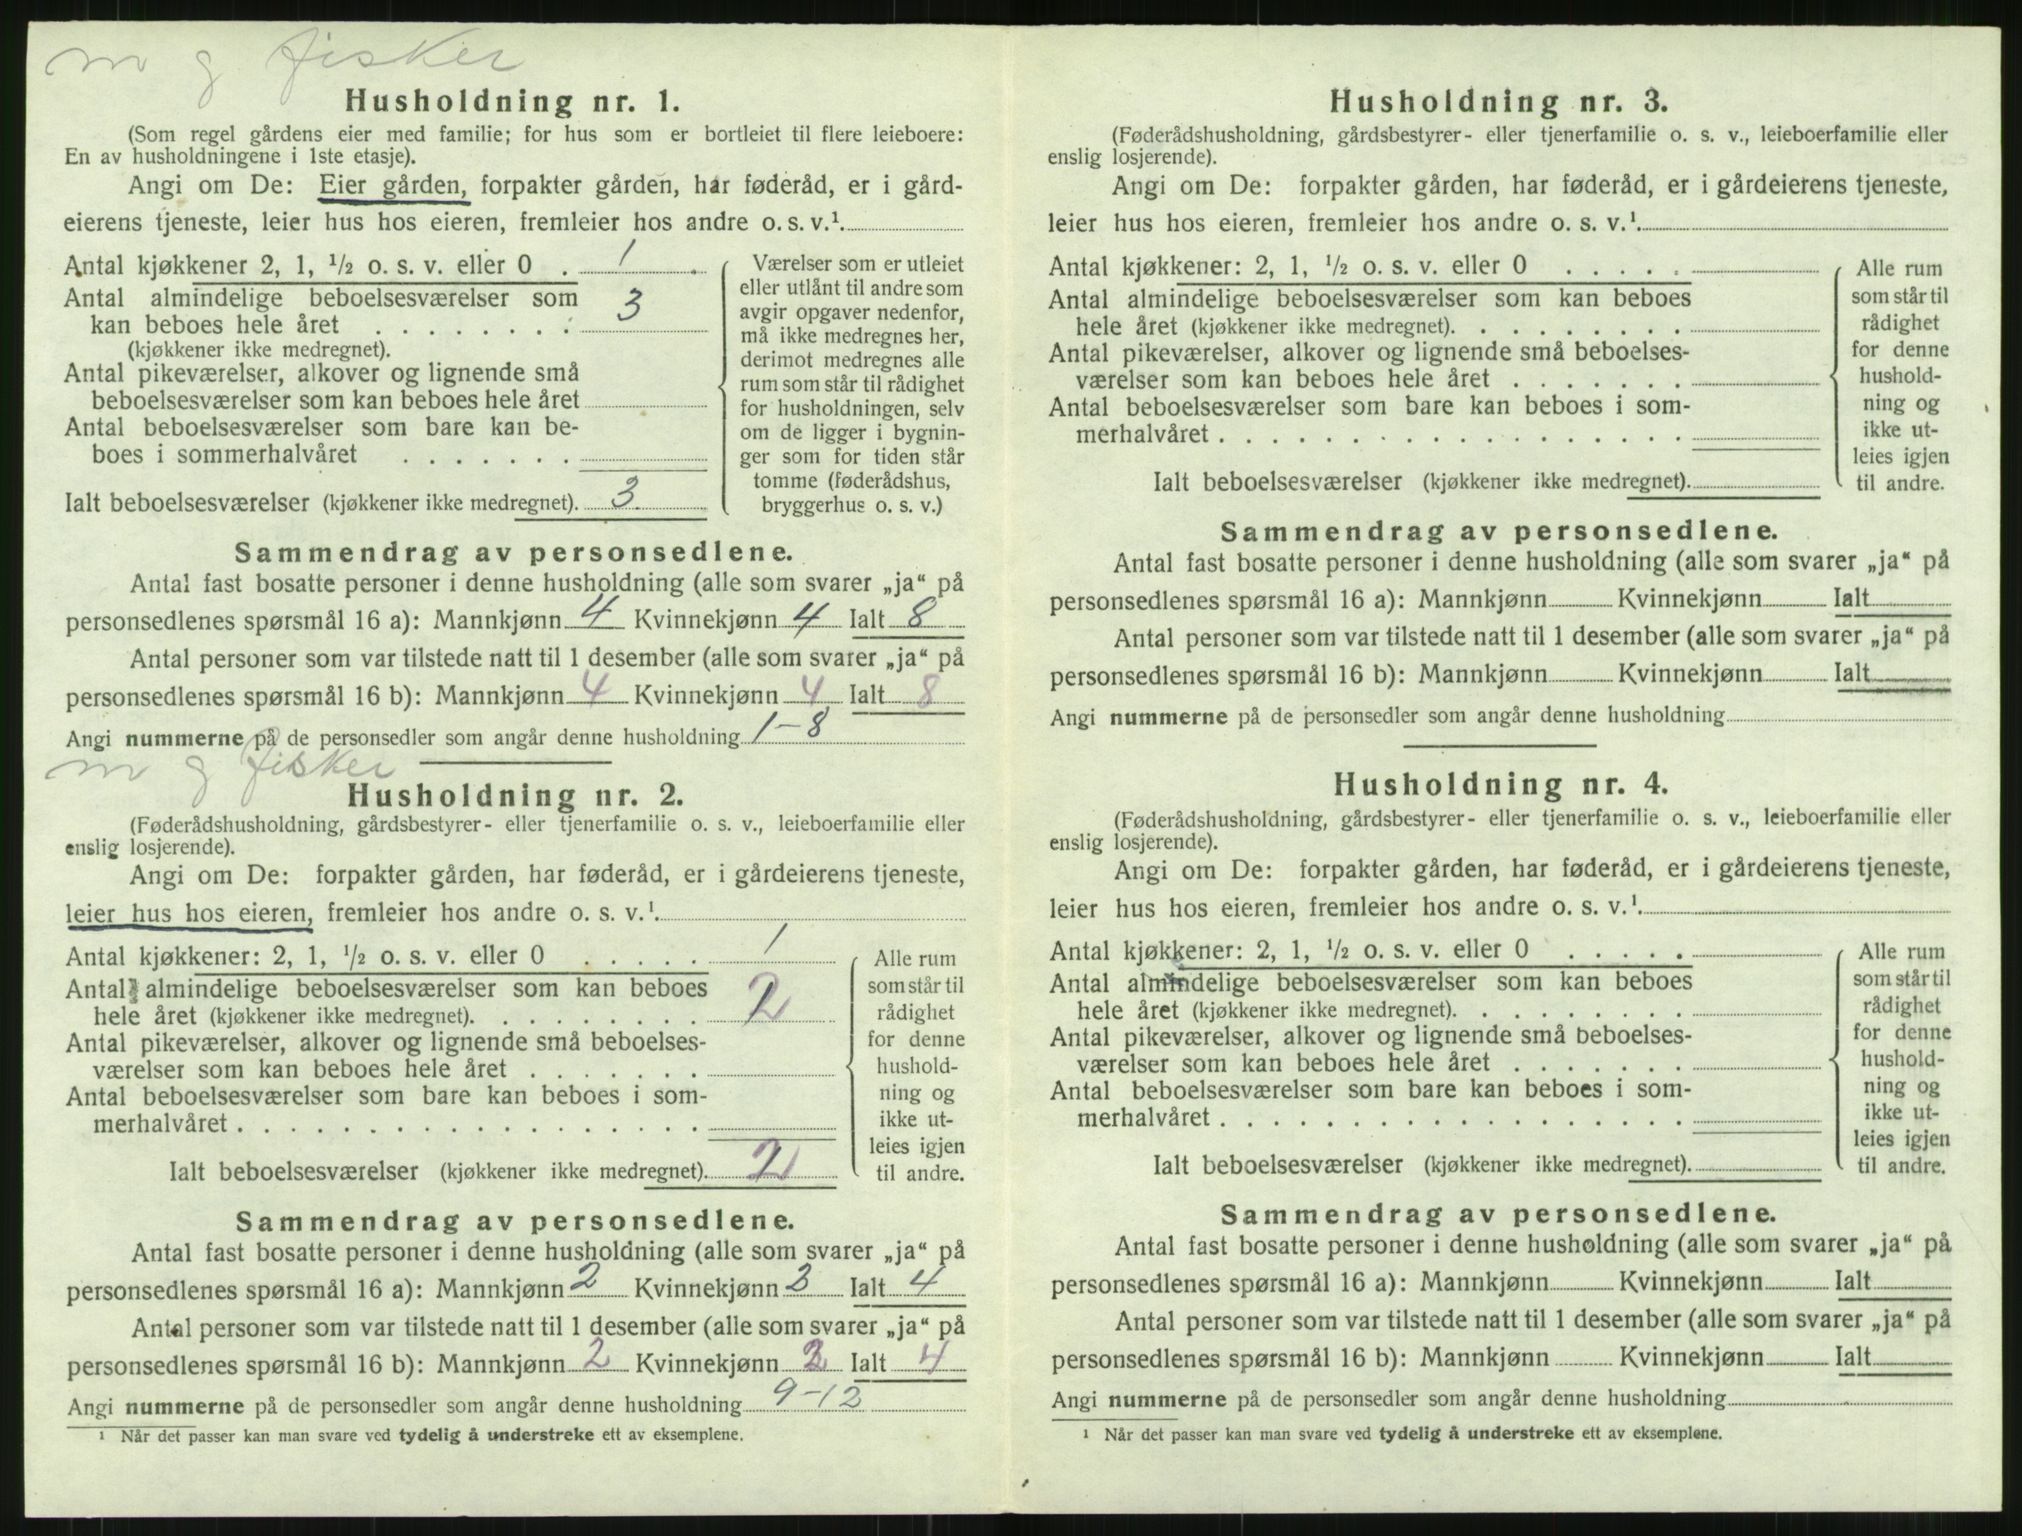 m g fisker
Husholdning nr. 1.
(Som regel gårdens eier med familie; for hus som er bortleiet til flere leieboere:
En av husholdningene i 1ste etasje).
Angi om De: Eier gården, forpakter gården, har føderåd, er i gård-
eierens tjeneste, leier hus hos eieren, fremleier hos andre o. s. v.¹
Antal kjøkkener 2, 1, ½ o. s. v. eller 0 . 1
Antal almindelige beboelsesværelser som
kan beboes hele året . . . . . . . . 3
(kjøkkener ikke medregnet).
Antal pikeværelser, alkover og lignende små
beboelsesværelser som kan beboes hele året
Antal beboelsesværelser som bare kan be-
boes i sommerhalvåret . . . . . . .
Ialt beboelsesværelser (kjøkkener ikke medregnet). 3
Værelser som er utleiet
eller utlånt til andre som
avgir opgaver nedenfor,
må ikke medregnes her,
derimot medregnes alle
rum som står til rådighet
for husholdningen, selv
om de ligger i bygnin-
ger som for tiden står
tomme (føderådshus,
bryggerhus o. s. v.)
Sammendrag av personsedlene.
Antal fast bosatte personer i denne husholdning (alle som svarer „ja“ på
personsedlenes spørsmål 16 a): Mannkjønn 4 Kvinnekjønn 4 Ialt 8
Antal personer som var tilstede natt til 1 desember (alle som svarer „ja“ på
personsedlenes spørsmål 16 b): Mannkjønn 4 Kvinnekjønn 4 Ialt 8
Angi nummerne på de personsedler som angår denne husholdning 1-8
m g fisker
Husholdning nr. 2.
(Føderådshusholdning, gårdsbestyrer- eller tjenerfamilie o. s. v., leieboerfamilie eller
enslig losjerende).
Angi om De: forpakter gården, har føderåd, er i gårdeierens tjeneste,
leier hus hos eieren, fremleier hos andre o. s. v.¹
Antal kjøkkener: 2, 1, ½ o. s. v. eller 0 . . . . . 1
Antal almindelige beboelsesværelser som kan beboes
hele året (kjøkkener ikke medregnet). . . . . . . . . 2
Antal pikeværelser, alkover og lignende små beboelses-
værelser som kan beboes hele året . . . . . . .
Antal beboelsesværelser som bare kan beboes i som-
merhalvåret . . . . . . . . . . . . . . . . . .
Ialt beboelsesværelser (kjøkkener ikke medregnet). 2
Alle rum
som står til
rådighet
for denne
hushold-
ning og
ikke ut-
leies igjen
til andre.
Sammendrag av personsedlene.
Antal fast bosatte personer i denne husholdning (alle som svarer „ja“ på
personsedlenes spørsmål 16 a): Mannkjønn 2 Kvinnekjønn 2 Ialt 4
Antal personer som var tilstede natt til 1 desember (alle som svarer „ja“ på
personsedlenes spørsmål 16 b): Mannkjønn 2 Kvinnekjønn 2 Ialt 4
Angi nummerne på de personsedler som angår denne husholdning 9-12
¹ Når det passer kan man svare ved tydelig å understreke ett av eksemplene.
Husholdning nr. 3.
(Føderådshusholdning, gårdsbestyrer- eller tjenerfamilie o. s. v., leieboerfamilie eller
enslig losjerende).
Angi om De: forpakter gården, har føderåd, er i gårdeierens tjeneste,
leier hus hos eieren, fremleier hos andre o. s. v.¹
Antal kjøkkener: 2, 1, ½ o. s. v. eller 0 . . . . .
Antal almindelige beboelsesværelser som kan beboes
hele året (kjøkkener ikke medregnet). . . . . . . . .
Antal pikeværelser, alkover og lignende små beboelses-
værelser som kan beboes hele året . . . . . . .
Antal beboelsesværelser som bare kan beboes i som-
merhalvåret . . . . . . . . . . . . . . . . . .
Ialt beboelsesværelser (kjøkkener ikke medregnet).
Alle rum
som står til
rådighet
for denne
hushold-
ning og
ikke ut-
leies igjen
til andre.
Sammendrag av personsedlene.
Antal fast bosatte personer i denne husholdning (alle som svarer „ja“ på
personsedlenes spørsmål 16 a): Mannkjønn Kvinnekjønn Ialt
Antal personer som var tilstede natt til 1 desember (alle som svarer „ja“ på
personsedlenes spørsmål 16 b): Mannkjønn Kvinnekjønn Ialt
Angi nummerne på de personsedler som angår denne husholdning
Husholdning nr. 4.
(Føderådshusholdning, gårdsbestyrer- eller tjenerfamilie o. s. v., leieboerfamilie eller
enslig losjerende).
Angi om De: forpakter gården, har føderåd, er i gårdeierens tjeneste,
leier hus hos eieren, fremleier hos andre o. s. v.¹
Antal kjøkkener: 2, 1, ½ o. s. v. eller 0 . . . . .
Antal almindelige beboelsesværelser som kan beboes
hele året (kjøkkener ikke medregnet). . . . . . . . .
Antal pikeværelser, alkover og lignende små beboelses-
værelser som kan beboes hele året . . . . . . .
Antal beboelsesværelser som bare kan beboes i som-
merhalvåret . . . . . . . . . . . . . . . . . .
Ialt beboelsesværelser (kjøkkener ikke medregnet).
Alle rum
som står til
rådighet
for denne
hushold-
ning og
ikke ut-
leies igjen
til andre.
Sammendrag av personsedlene.
Antal fast bosatte personer i denne husholdning (alle som svarer „ja“ på
personsedlenes spørsmål 16 a): Mannkjønn Kvinnekjønn Ialt
Antal personer som var tilstede natt til 1 desember (alle som svarer „ja“ på
personsedlenes spørsmål 16 b): Mannkjønn Kvinnekjønn Ialt
Angi nummerne på de personsedler som angår denne husholdning
¹ Når det passer kan man svare ved tydelig å understreke ett av eksemplene.